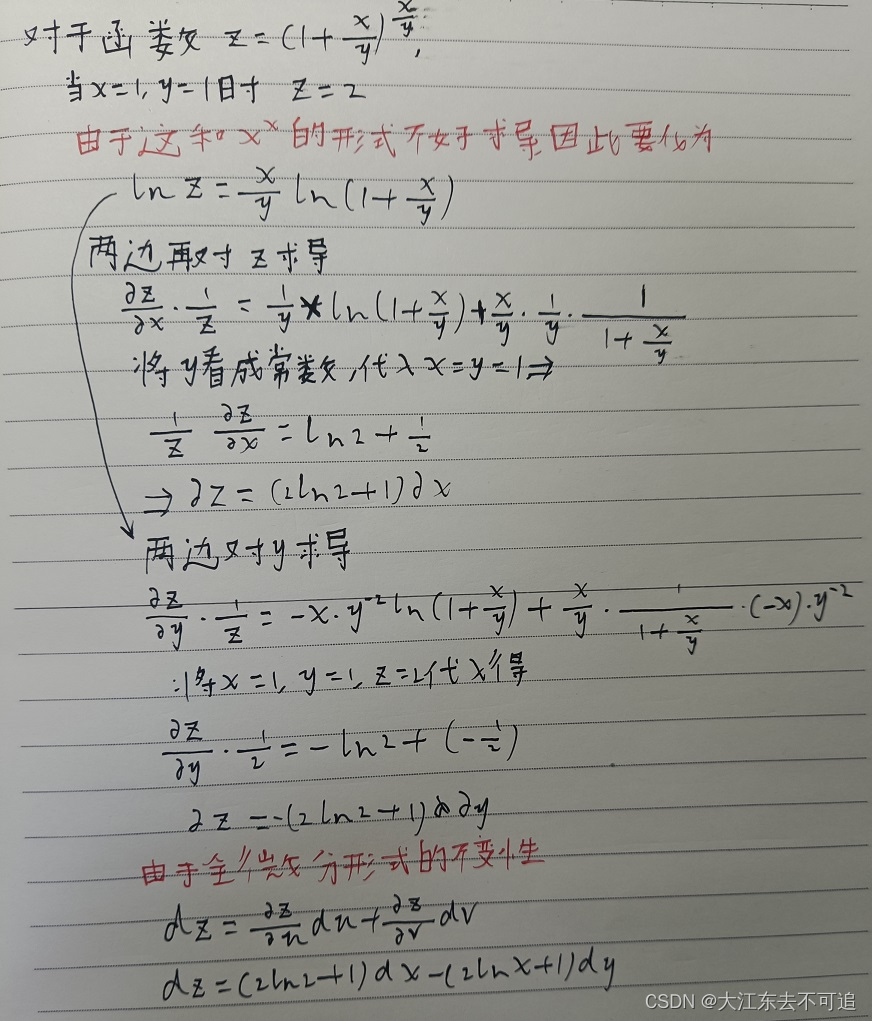 对于函数 z = (1 + x/y)^(x/y),
当x=1, y=1时 z=2
由于这种x^x的形式不好求导因此要化为
ln z = x/y ln(1 + x/y)
两边再对z求导
∂z/∂x · 1/z = 1/y * ln(1 + x/y) + x/y · 1/y · 1/(1 + x/y)
将y看成常数,代入x=y=1⇒
1/z ∂z/∂x = ln2 + 1/2
⇒ ∂z = (2ln2+1)∂x
两边对y求导
∂z/∂y · 1/z = -x·y^-2 ln(1 + x/y) + x/y · 1/(1 + x/y) · (-x)·y^-2
将x=1, y=1, z=2代入得
∂z/∂y · 1/2 = -ln2 + (-1/2)
∂z = -(2ln2+1)∂y
由于全微分形式的不变性
dz = ∂z/∂u du + ∂z/∂v dv
dz = (2ln2+1)dx - (2lnx+1)dy
CSDN @大江东去不可追